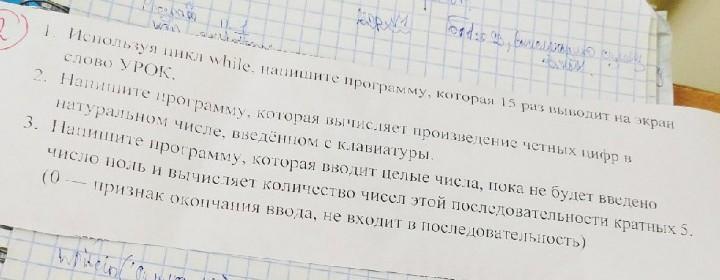 2
1. Используя цикл while, напишите программу, которая 15 раз выводит на экран
слово УРОК.
2. Напишите программу, которая вычисляет произведение четных цифр в
натуральном числе, введённом с клавиатуры.
3. Напишите программу, которая вводит целые числа, пока не будет введено
число ноль и вычисляет количество чисел этой последовательности кратных 5.
(0 — признак окончания ввода, не входит в последовательность)